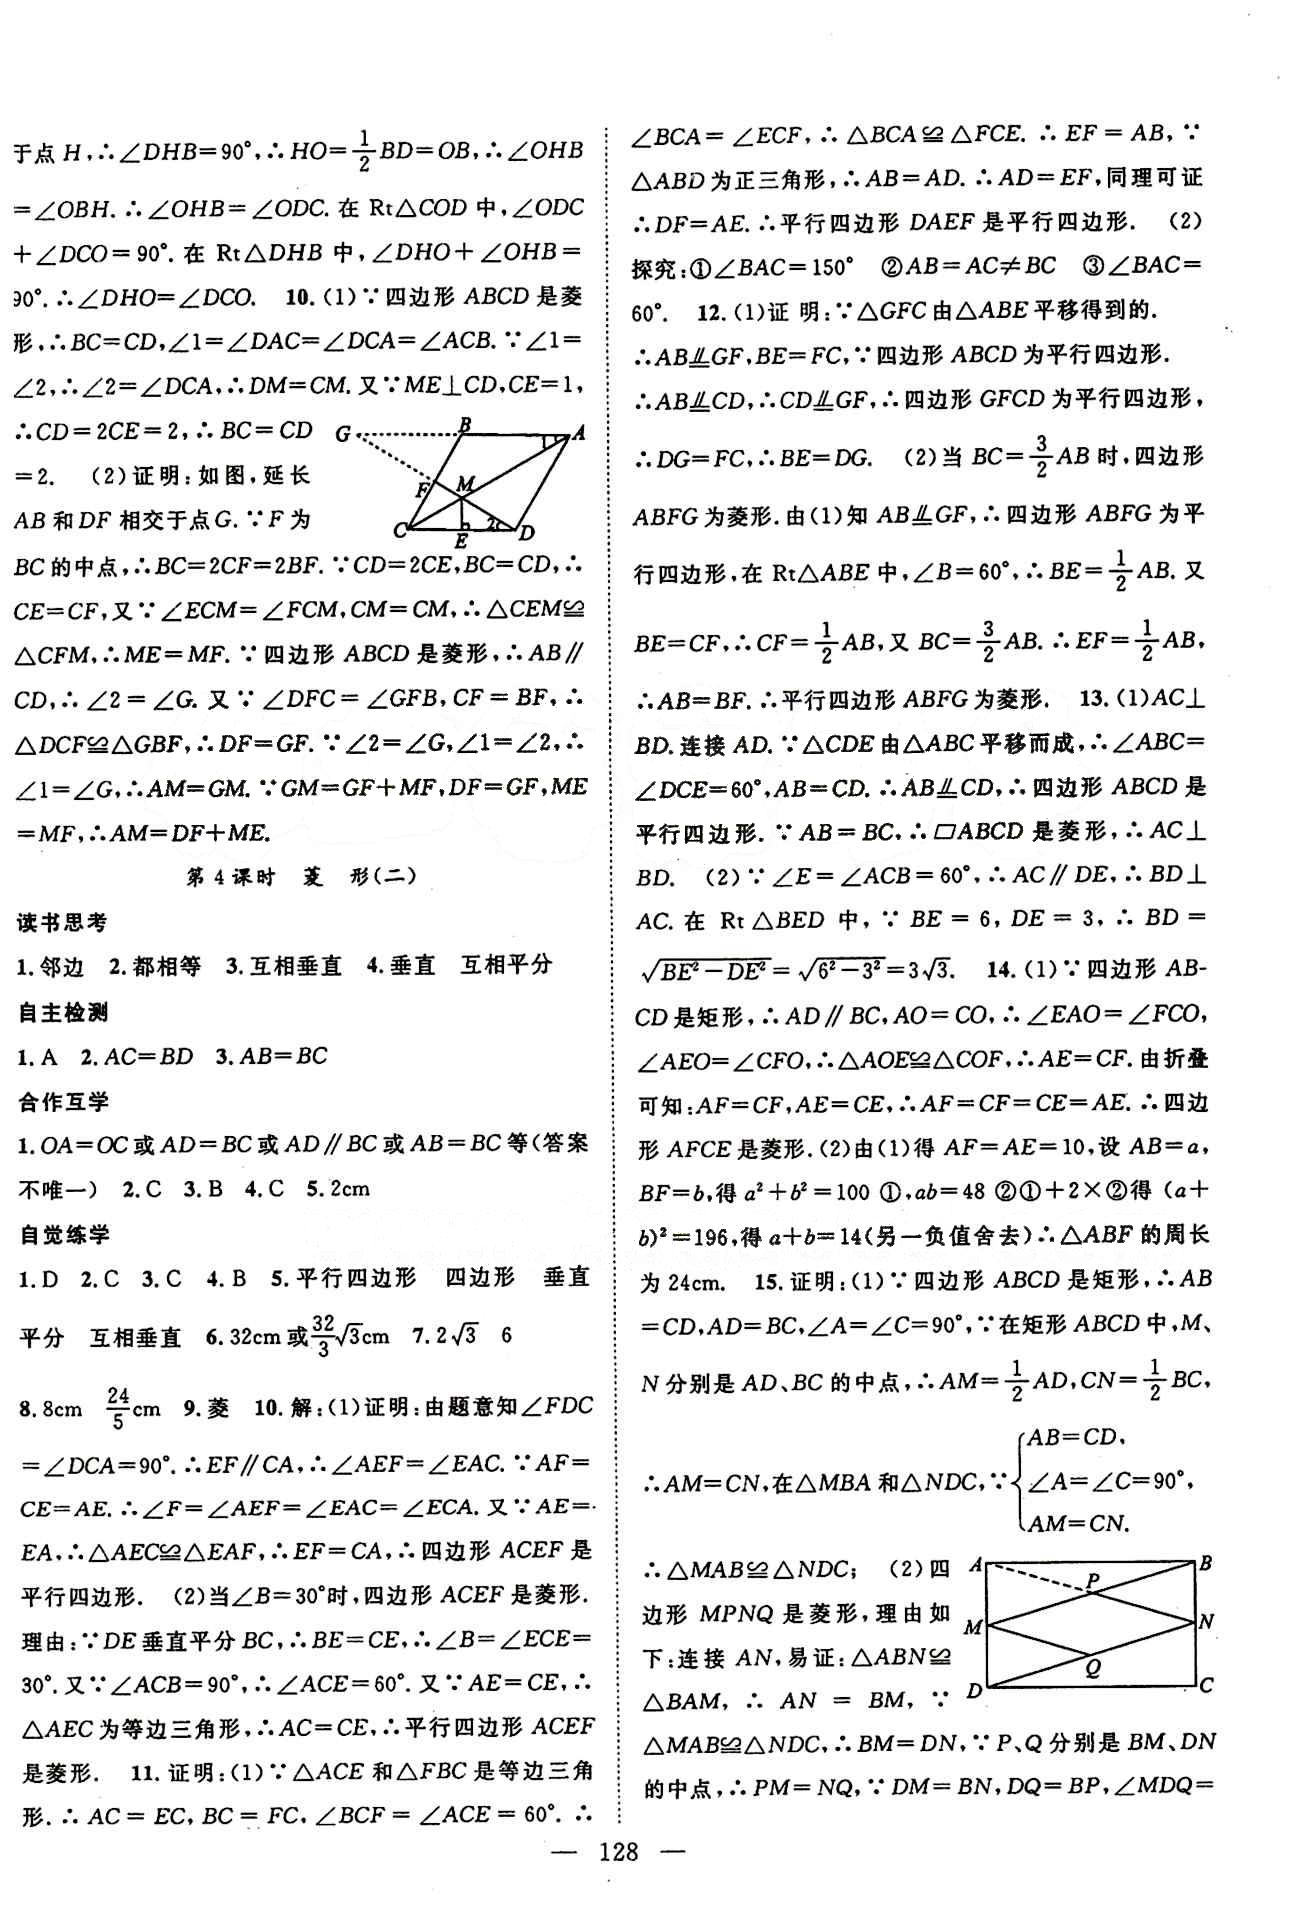 于点 H,∴∠DHB=90°,∴HO=1/2BD=OB,∴∠OHB
=∠OBH.∴∠OHB=∠ODC.在 Rt△COD 中,∠ODC
+∠DCO=90°.在 Rt△DHB 中,∠DHO+∠OHB=
90°.∴∠DHO=∠DCO. 10.(1)∵四边形 ABCD 是菱
形,∴BC=CD,∠1=∠DAC=∠DCA=∠ACB.∵∠1=
∠2,∴∠2=∠DCA,∴DM=CM.又∵ME⊥CD,CE=1,
∴CD=2CE=2,∴BC=CD
=2. (2)证明:如图,延长
AB 和 DF 相交于点 G.∵F 为
G B A
F M
1
C E 2 D
BC 的中点,∴BC=2CF=2BF.∵CD=2CE,BC=CD,∴
CE=CF,又∵∠ECM=∠FCM,CM=CM,∴△CEM≌
△CFM,∴ME=MF.∵四边形 ABCD 是菱形,∴AB∥
CD,∴∠2=∠G.又∵∠DFC=∠GFB,CF=BF,∴
△DCF≌△GBF,∴DF=GF.∵∠2=∠G,∠1=∠2,∴
∠1=∠G,∴AM=GM.∵GM=GF+MF,DF=GF,ME
=MF,∴AM=DF+ME.
第 4 课时 菱 形(二)
读书思考
1.邻边 2.都相等 3.互相垂直 4.垂直 互相平分
自主检测
1.A 2.AC=BD 3.AB=BC
合作互学
1.OA=OC或AD=BC或AD∥BC或AB=BC等(答案
不唯一) 2.C 3.B 4.C 5.2cm
自觉练学
1.D 2.C 3.C 4.B 5.平行四边形 四边形 垂直
平分 互相垂直 6.32cm或32/3√3cm 7.2√3 6
8.8cm 24/5cm 9.菱 10.解:(1)证明:由题意知∠FDC
=∠DCA=90°.∴EF∥CA,∴∠AEF=∠EAC.∵AF=
CE=AE.∴∠F=∠AEF=∠EAC=∠ECA.又∵AE=
EA,∴△AEC≌△EAF,∴EF=CA,∴四边形 ACEF 是
平行四边形. (2)当∠B=30°时,四边形 ACEF 是菱形.
理由:∵DE 垂直平分 BC,∴BE=CE,∴∠B=∠ECE=
30°.又∵∠ACB=90°,∴∠ACE=60°.又∵AE=CE,∴
△AEC 为等边三角形,∴AC=CE,∴平行四边形 ACEF
是菱形. 11.证明:(1)∵△ACE 和△FBC 是等边三角
形.∴AC=EC,BC=FC,∠BCF=∠ACE=60°.∴
∠BCA=∠ECF,∴△BCA≌△FCE.∴EF=AB,∵
△ABD 为正三角形,∴AB=AD.∴AD=EF,同理可证
∴DF=AE.∴平行四边形 DAEF 是平行四边形. (2)
探究:①∠BAC=150° ②AB=AC≠BC ③∠BAC=
60°. 12.(1)证明:∵△GFC 由△ABE 平移得到的.
∴AB⫫GF,BE=FC,∵四边形 ABCD 为平行四边形.
∴AB⫫CD,∴CD⫫GF,∴四边形 GFCD 为平行四边形,
∴DG=FC,∴BE=DG. (2)当 BC=3/2AB 时,四边形
ABFG 为菱形.由(1)知 AB⫫GF,∴四边形 ABFG 为平
行四边形,在 Rt△ABE 中,∠B=60°,∴BE=1/2AB.又
BE=CF,∴CF=1/2AB,又 BC=3/2AB.∴EF=1/2AB,
∴AB=BF.∴平行四边形 ABFG 为菱形. 13.(1)AC⊥
BD.连接 AD.∵△CDE 由△ABC 平移而成,∴∠ABC=
∠DCE=60°,AB=CD.∴AB⫫CD,∴四边形 ABCD 是
平行四边形.∵AB=BC,∴▱ABCD 是菱形,∴AC⊥
BD. (2)∵∠E=∠ACB=60°,∴AC∥DE,∴BD⊥
AC.在 Rt△BED 中,∵BE=6,DE=3,∴BD=
√(BE²-DE²)=√(6²-3²)=3√3. 14.(1)∵四边形 AB-
CD 是矩形,∴AD∥BC,AO=CO,∴∠EAO=∠FCO,
∠AEO=∠CFO,∴△AOE≌△COF,∴AE=CF.由折叠
可知:AF=CF,AE=CE,∴AF=CF=CE=AE.∴四边
形 AFCE 是菱形.(2)由(1)得 AF=AE=10,设 AB=a,
BF=b,得 a²+b²=100 ①,ab=48 ②①+2×②得 (a+
b)²=196,得 a+b=14(另一负值舍去)∴△ABF 的周长
为 24cm. 15.证明:(1)∵四边形 ABCD 是矩形,∴AB
=CD,AD=BC,∠A=∠C=90°,∵在矩形 ABCD 中,M、
N 分别是 AD、BC 的中点,∴AM=1/2AD,CN=1/2BC,
AB=CD,
∴AM=CN,在△MBA 和△NDC,∵{∠A=∠C=90°,
AM=CN.
∴△MAB≌△NDC; (2)四
边形 MPNQ 是菱形,理由如
下:连接 AN,易证:△ABN≌
△BAM,∴AN=BM,∵
A B
P
M N
Q
D C
△MAB≌△NDC,∴BM=DN,∵P、Q 分别是 BM、DN
的中点,∴PM=NQ,∵DM=BN,DQ=BP,∠MDQ=
— 128 —